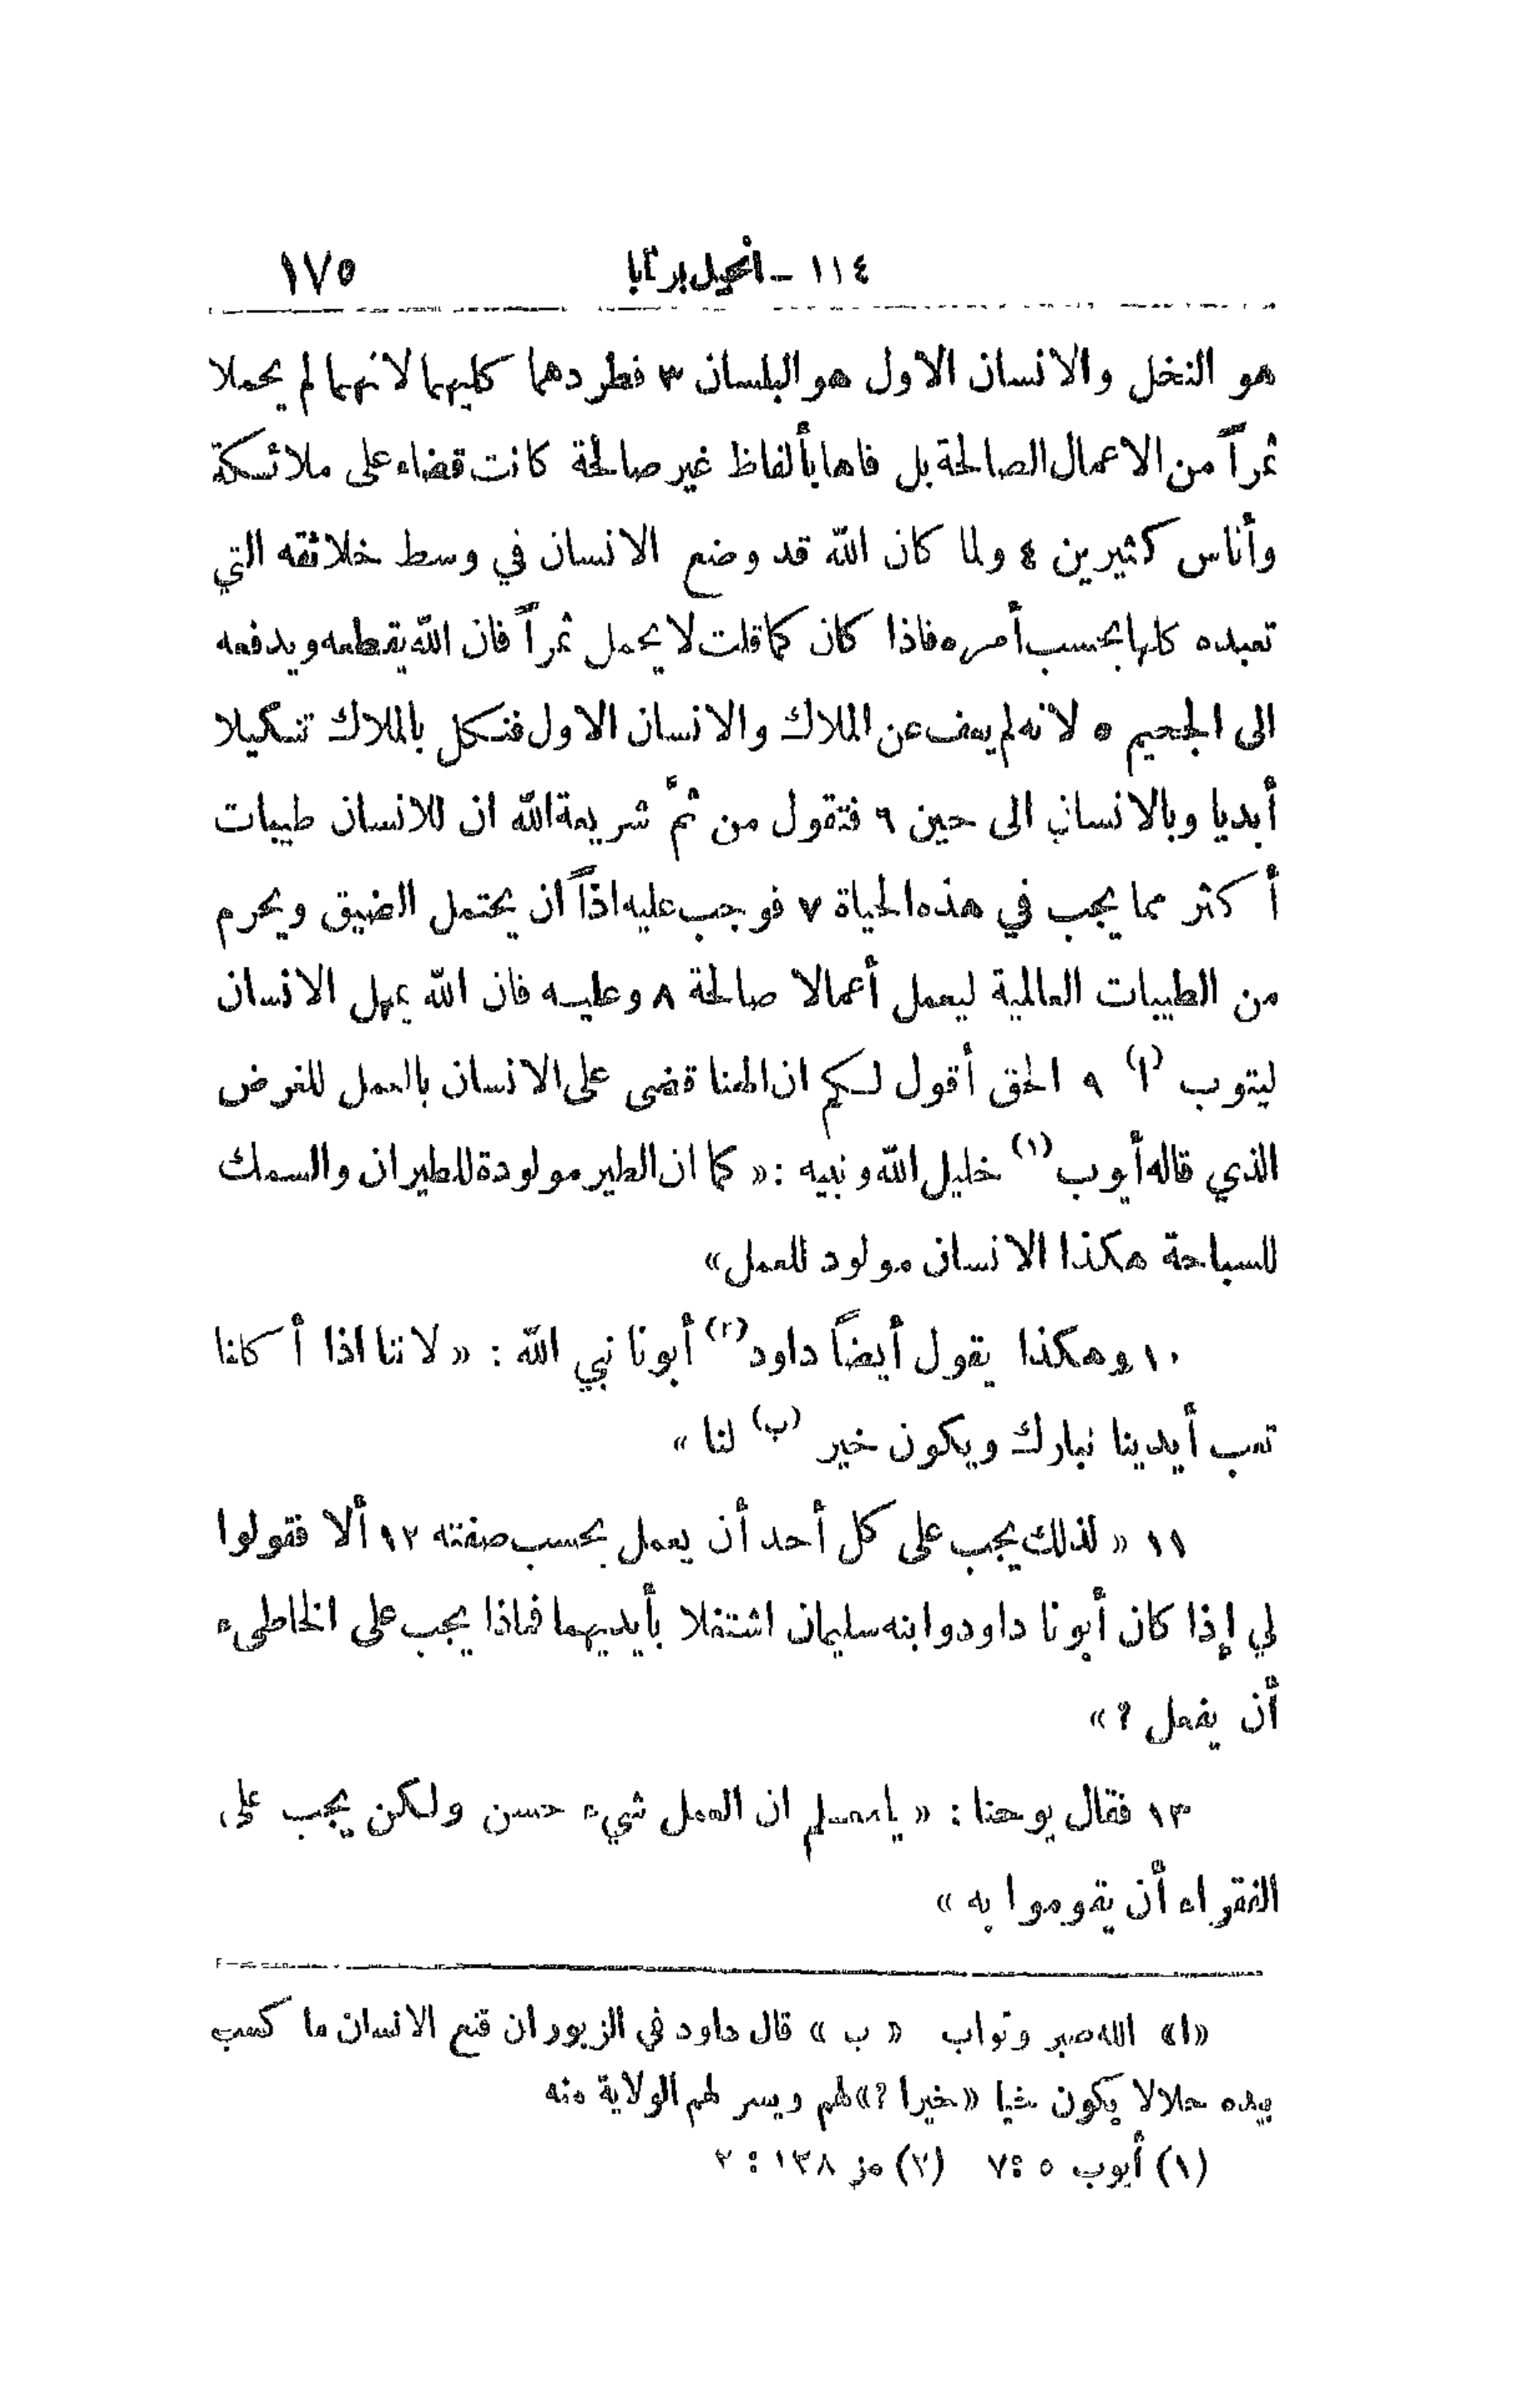 ١١٤ – انجيل برنابا ١٧٥
هو النخل والانسان الاول هو البلسان ٣ فطردهما كليهما لانهما لم يحملا
ثمراً من الاعمال الصالحة بل فاها بألفاظ غير صالحة كانت قضاء على ملائكة
وأناس كثيرين ٤ ولما كان الله قد وضع الانسان في وسط خلائقه التي
تعبده كلها بحسب أمره فاذا كان كما قلت لا يحمل ثمراً فان الله يقطعه ويدفعه
الى الجحيم ٥ لانه لم يعف عن الملاك والانسان الاول فنكل بالملاك تنكيلا
أبديا وبالانسان الى حين ٦ فتقول من ثمَّ شريعة الله ان للانسان طيبات
أكثر مما يجب في هذه الحياة ٧ فوجب عليه اذاً ان يحتمل الضيق ويحرم
من الطيبات العالمية ليعمل أعمالا صالحة ٨ وعليه فان الله يمهل الانسان
ليتوب (ا) ٩ الحق أقول لكم ان الهنا قضى على الانسان بالعمل للغرض
الذي قاله أيوب (١) خليل الله ونبيه : « كما ان الطير مولودة للطيران والسمك
للسباحة هكذا الانسان مولود للعمل»
١٠ وهكذا يقول أيضاً داود (٢) أبونا نبي الله : « لاننا اذا أكلنا
تعب أيدينا نبارك ويكون خير (ب) لنا »
١١ « لذلك يجب على كل أحد أن يعمل بحسب صفته ١٢ ألا فقولوا
لي إذا كان أبونا داود وابنه سليمان اشتغلا بأيديهما فماذا يجب على الخاطيء
أن يفعل ؟ »
١٣ فقال يوحنا : « يا معلم ان العمل شيء حسن ولكن يجب على
الفقراء أن يقوموا به »
«ا» الله صبر وتواب « ب » قال داود في الزبور ان قنع الانسان ما كسب
بيده حلالا يكون شيا «خيرا ؟» لهم ويسر لهم الولاية منه
(١) أيوب ٥ : ٧ (٢) مز ١٣٨ : ٢